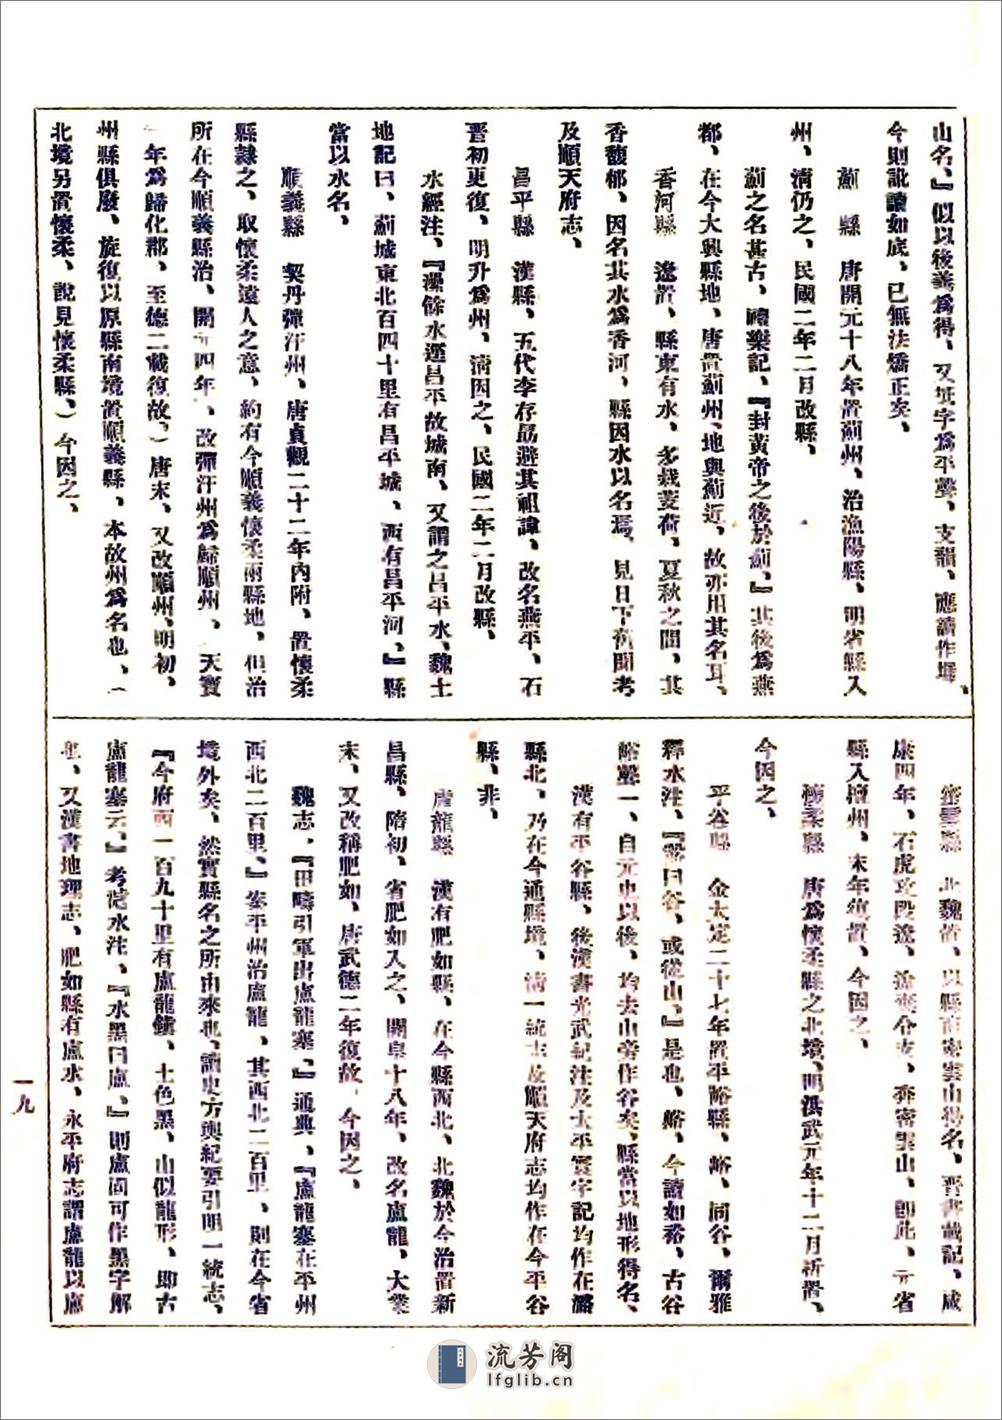 山名、』似以後義爲得、又坻字爲平聲、支韻、應讀作墀、
今則訛讀如底、已無法矯正矣、
薊　縣　唐開元十八年置薊州、治漁陽縣、明省縣入
州、淸仍之、民國二年二月改縣、
薊之名甚古、禮樂記、『封黃帝之後於薊、』其後爲燕
都、在今大興縣地、唐置薊州、地與薊近、故亦用其名耳、
香河縣　遼置、縣東有水、多栽菱荷、夏秋之間、其
香馥郁、因名其水爲香河、縣因水以名焉、見日下舊聞考
及順天府志、
昌平縣　漢縣、五代李存勗避其祖諱、改名燕平、石
晋初更復、明升爲州、淸因之、民國二年二月改縣、
水經注、『濕餘水逕昌平故城南、又謂之昌平水、魏土
地記曰、薊城東北百四十里有昌平城、西有昌平河、』縣
當以水名、
順義縣　契丹彈汗州、唐貞觀二十二年內附、置懷柔
縣隸之、取懷柔遠人之意、約有今順義懷柔兩縣地、但治
所在今順義縣治、開元四年、改彈汗州爲歸順州、（天寶
一年爲歸化郡、至德二載復故、）唐末、又改順州、明初、
州縣俱廢、旋復以原縣南境置順義縣、本故州爲名也、（
北境另置懷柔、說見懷柔縣、）今因之、
密雲縣　北魏置、以縣南密雲山得名、晋書載記、咸
康四年、石虎攻段遼、遼棄令支、奔密雲山、卽此、元省
縣入檀州、末年復置、今因之、
懷柔縣　唐爲懷柔縣之北境、明洪武元年十二月析置、
今因之、
平谷縣　金大定二十七年置平峪縣、峪、同谷、爾雅
釋水注、『谿曰谷、或從山、』是也、峪、今讀如裕、古谷
峪無一、自元史以後、均去山旁作谷矣、縣當以地形得名、
漢有平谷縣、後漢書光武紀注及太平寰宇記均作在潞
縣北、乃在今通縣境、淸一統志及順天府志均作在今平谷
縣、非、
盧龍縣　漢有肥如縣、在今縣西北、北魏於今治置新
昌縣、隋初、省肥如入之、開皇十八年、改名盧龍、大業
末、又改稱肥如、唐武德二年復故、今因之、
魏志、『田疇引軍出盧龍塞、』通典、『盧龍塞在平州
西北二百里、』案平州治盧龍、其西北二百里、則在今省
境外矣、然實縣名之所由來也、讀史方輿紀要引明一統志、
『今府西一百九十里有盧龍鎭、土色黑、山似龍形、卽古
盧龍塞云、』考漣水注、『水黑曰盧、』則盧固可作黑字解
也、又漢書地理志、肥如縣有盧水、永平府志謂盧龍以盧
一九
流芳阁
lfglib.cn